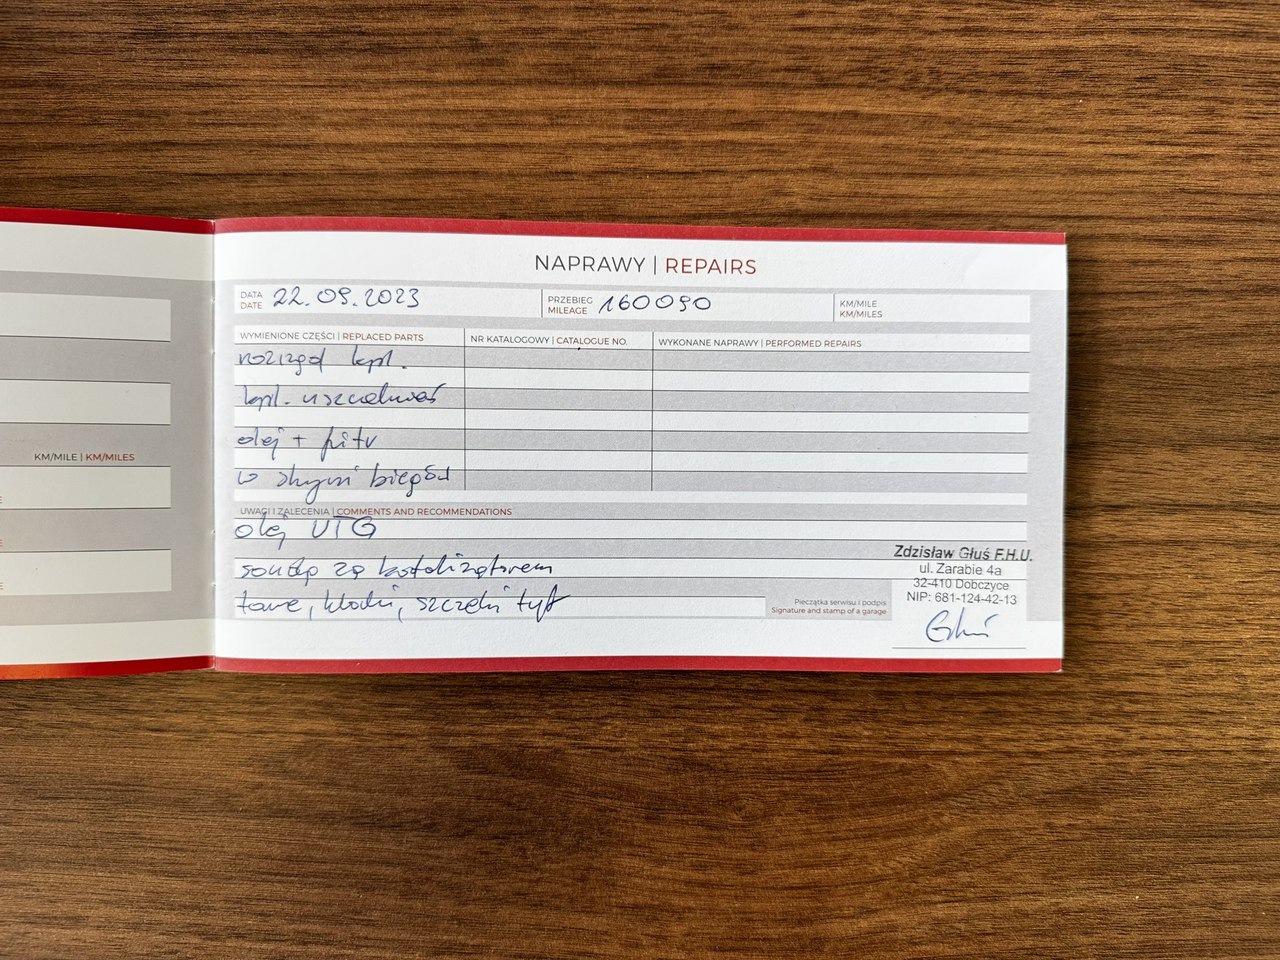 NAPRAWY | REPAIRS
DATA
DATE
22.09.2023
PRZEBIEG
MILEAGE
160090
KM/MILE
KM/MILES
WYMIENIONE CZĘŚCI | REPLACED PARTS
NR KATALOGOWY | CATALOGUE NO.
WYKONANE NAPRAWY | PERFORMED REPAIRS
rozrząd kpl.
kpl. uszczelnień
olej + filtr
w skrzyni biegów
UWAGI I ZALECENIA | COMMENTS AND RECOMMENDATIONS
olej UTG
sondę za katalizatorem
tarcze, klocki, szczęki tył
Pieczątka serwisu i podpis
Signature and stamp of a garage
Zdzisław Głuś F.H.U.
ul. Zarabie 4a
32-410 Dobczyce
NIP: 681-124-42-13
Głuś
KM/MILE | KM/MILES